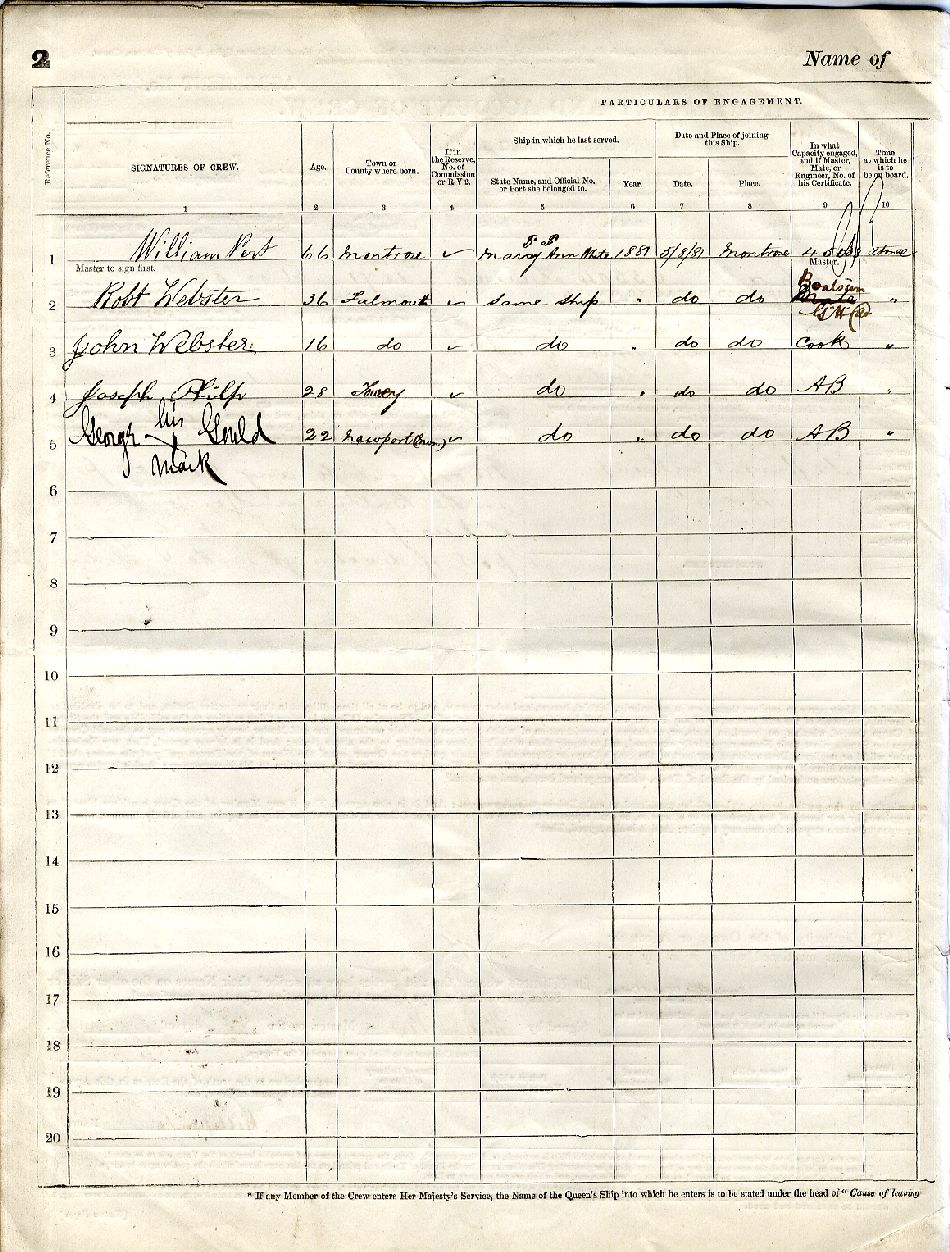 2
Name of
PARTICULARS OF ENGAGEMENT.
Reference No.
SIGNATURES OF CREW.
Age.
Town or County where born.
If in the Reserve, No. of Commission or R.V 2.
Ship in which he last served.
State Name, and Official No. or Port she belonged to.
Year.
Date and Place of joining this Ship.
Date.
Place.
In what Capacity engaged, and if Master, Mate, or Engineer, No. of his Certificate.
Time at which he is to be on board.
1 2 3 4 5 6 7 8 9 10
1 William 66 Montrose Mary Ann 1881 5/8/81 Montrose
Master to sign first.
Master.
2 Robt Webster 36 Falmouth same ship " do do Boatswain "
3 John Webster 16 do do " do do Cook "
4 Joseph Philp 28 Fowey do " do do AB "
5 George his x mark Gould 22 Newport do " do do AB "
6
7
8
9
10
11
12
13
14
15
16
17
18
19
20
* If any Member of the Crew enters Her Majesty's Service, the Name of the Queen's Ship into which he enters is to be stated under the head of "Cause of leaving